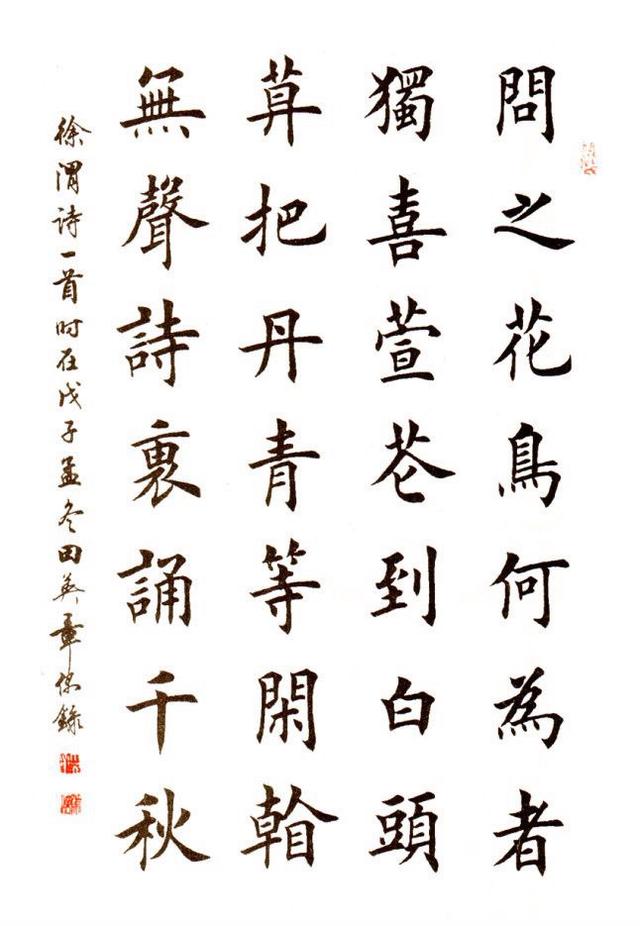 問之花鳥何為者
獨喜萱花到白頭
算把丹青等閑看
無聲詩裏誦千秋
徐渭诗一首时在戊子孟冬田英章錄